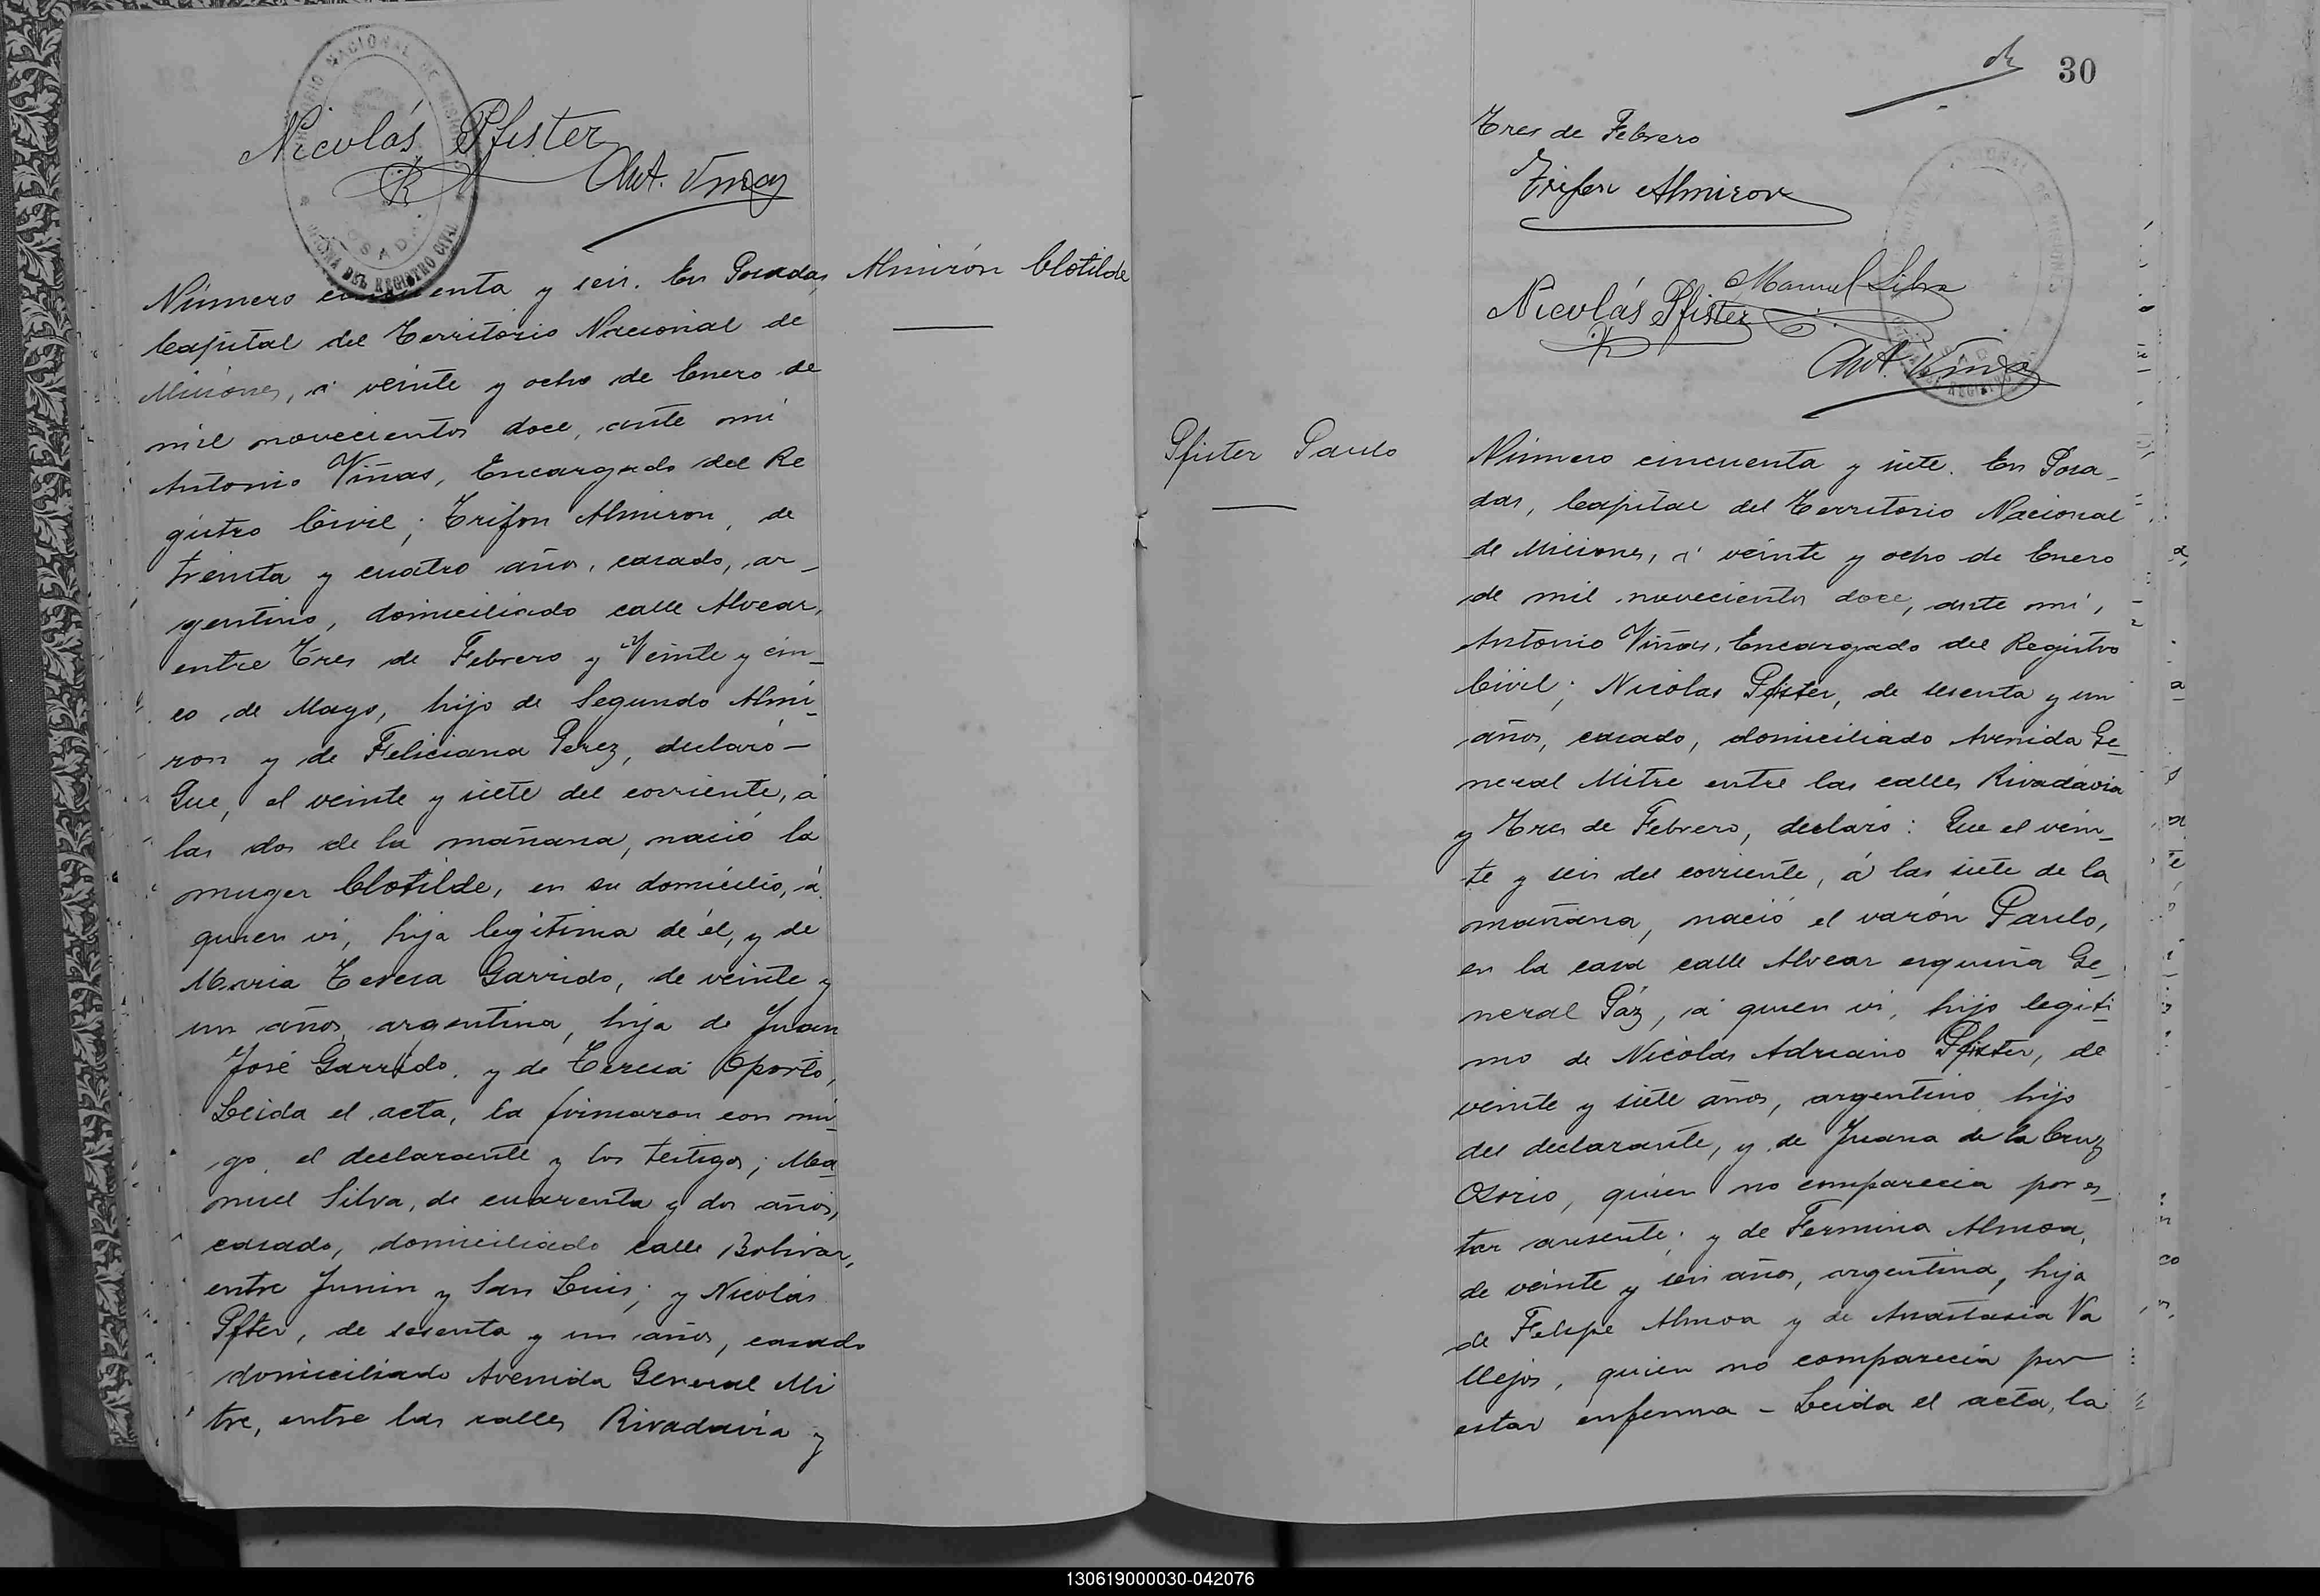 Nicolás Pfister
Ant. Viñas
TERRITORIO NACIONAL DE MISIONES
POSADAS
OFICINA DEL REGISTRO CIVIL
Almirón Clotilde
Número cincuenta y seis. En Posadas
Capital del Territorio Nacional de
Misiones, á veinte y ocho de Enero de
mil novecientos doce, ante mi
Antonio Viñas, Encargado del Re
gistro Civil; Trifon Almiron, de
treinta y cuatro años, casado, ar_
gentino, domiciliado calle Alvear,
entre Tres de Febrero y Veinte y cin_
co de Mayo, hijo de Segundo Almi_
ron y de Feliciana Perez, declaró —
Que, el veinte y siete del corriente, a
las dos de la mañana, nació la
muger Clotilde, en su domicilio, á
quien vi, hija legítima de él, y de
Maria Teresa Garrido, de veinte y
un años, argentina, hija de Juan
José Garrido, y de Teresa Oporto,
Leida el acta, la firmaron con mi_
go, el declarante y los testigos; Ma_
nuel Silva, de cuarenta y dos años,
casado, domiciliado calle Bolivar,
entre Junin y San Luis; y Nicolás
Pfter, de sesenta y un años, casado
domiciliado Avenida General Mi
tre, entre las calles Rivadavia y
30
Tres de Febrero
Trifon Almiron
Manuel Silva
Nicolás Pfister
Ant. Viñas
Pfister Paulo
Número cincuenta y siete. En Posa_
das, Capital del Territorio Nacional
de Misiones, á veinte y ocho de Enero
de mil novecientos doce, ante mi,
Antonio Viñas, Encargado del Registro
Civil; Nicolas Pfister, de sesenta y un
años, casado, domiciliado Avenida Ge_
neral Mitre entre las calles Rivadavia
y Tres de Febrero, declaró: Que el vein_
te y seis del corriente, á las siete de la
mañana, nació el varón Paulo,
en la casa calle Alvear esquina Ge_
neral Páz, á quien vi, hijo legiti_
mo de Nicolas Adriano Pfister, de
veinte y siete años, argentino, hijo
del declarante, y de Juana de la Cruz
Osorio, quien no comparecia por es_
tar ausente; y de Fermina Almoa,
de veinte y seis años, argentina, hija
de Felipe Almoa y de Anastasia Va
llejos, quien no comparecia por
estar enferma – Leida el acta, la
130619000030-042076